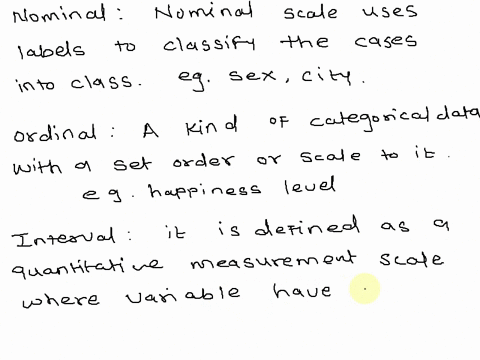 Nominal: Nominal scale uses
labels to classify the cases
into class. eg. sex, city.
Ordinal: A kind of categorical data
with a set order or scale to it.
eg. happiness level
Interval: it is defined as a
quantitative measurement scale
where variable have